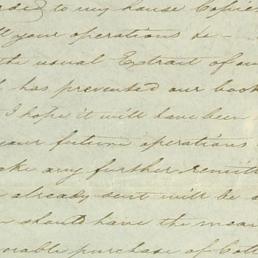 to my house Copies
your operations &c -
the usual Extract of our
has prevented our book
I hope it will have been
your future operations
any further remitt
already sent will be
should have the mean
purchase of Cott